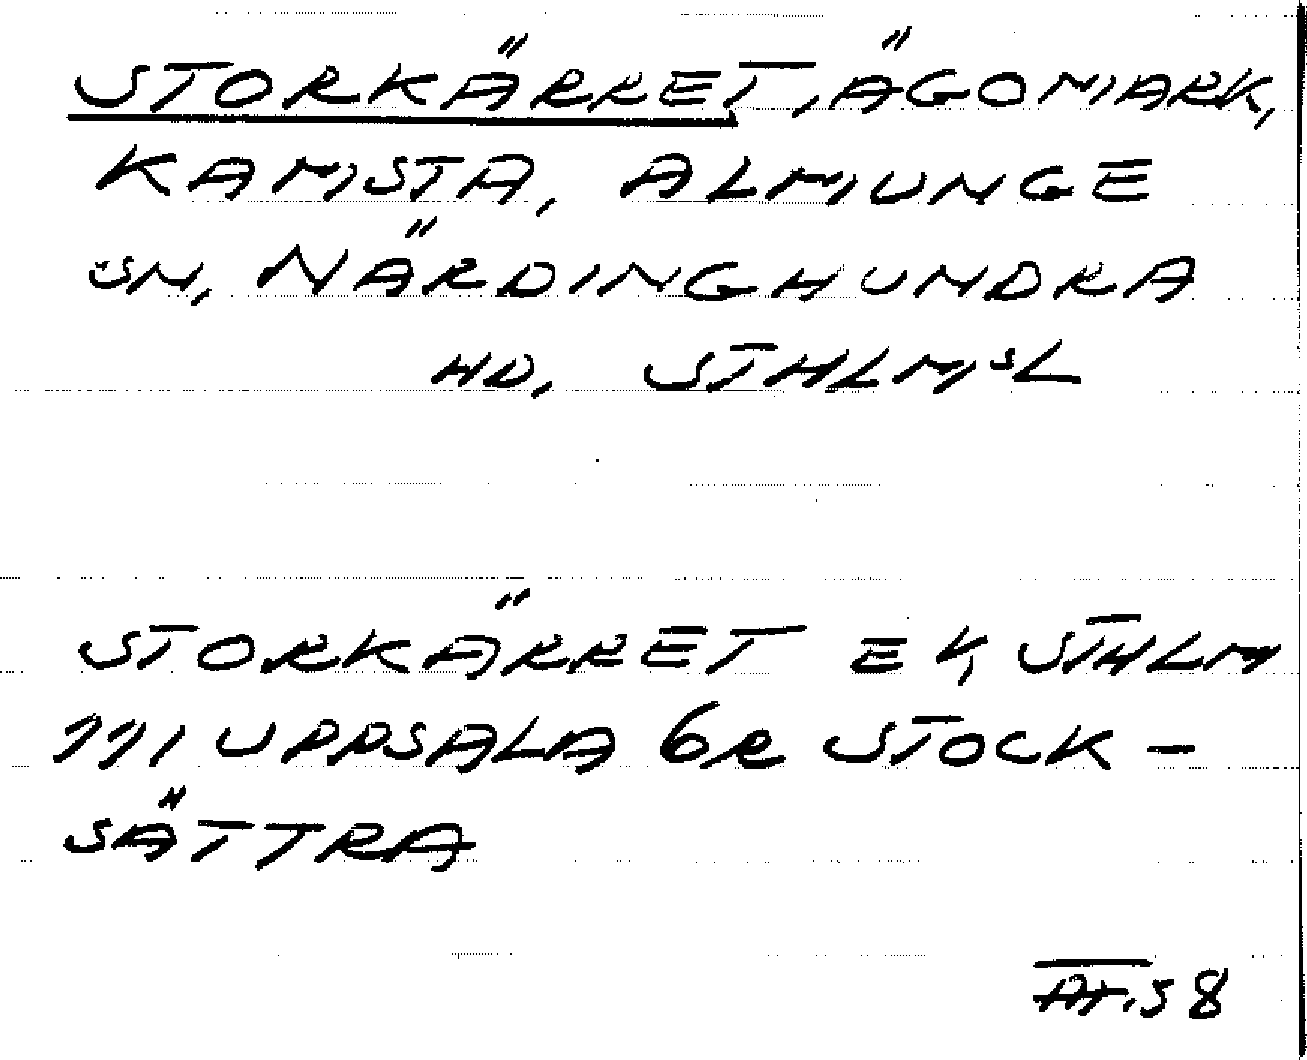 STORKÄRRET, ÄGOMARK,
KAMSTA, ALMUNGE
SN, NÄRDINGHUNDRA
HD, STHLMSL
STORKÄRRET EK, STHLM
111 UPPSALA 6R STOCK-
SÄTTRA
58